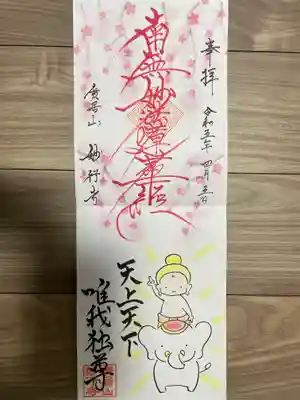 奉拝
令和五年四月五日
南無妙法蓮華経
妙行寺
天上天下
唯我独尊